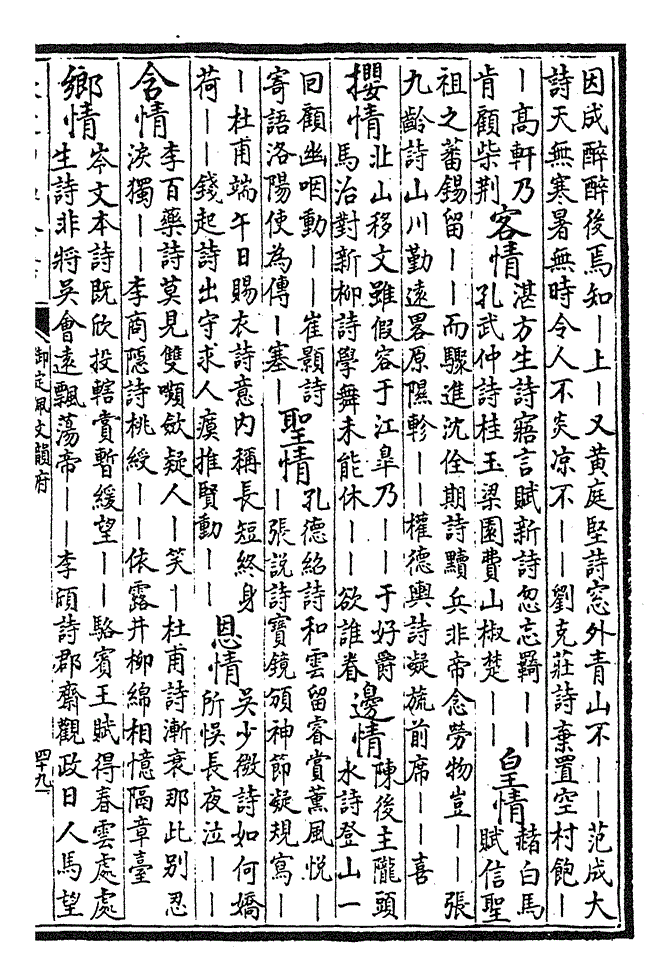 因成醉醉後焉知—上—又黄庭堅詩窓外青山不——范成大
詩天無寒暑無時令人不炎凉不——劉克莊詩棄置空村飽—
—高軒乃
肯顧柴荆
客情
湛方生詩寤言賦新詩忽忘羇——
孔武仲詩桂玉梁園費山椒楚——
皇情
赭白馬
賦信聖
祖之蕃錫留——而驟進沈佺期詩黷兵非帝念勞物豈——張
九齡詩山川勤遠畧原隰軫——權德輿詩凝旒前席——喜
攖情
北山移文雖假容于江臯乃——于好爵
馬治對新柳詩學舞未能休——欲誰眷
邊情
陳後主隴頭
水詩登山一
回顧幽咽動——崔顥詩
寄語洛陽使為傳—塞—
聖情
孔德紹詩和雲留睿賞薰風悦—
—張説詩寳鏡頒神節凝規寫—
—杜甫端午日賜衣詩意内稱長短終身
荷——錢起詩出守求人瘼推賢動——
恩情
吳少微詩如何嬌
所悞長夜泣——
含情
李百藥詩莫見雙嚬歛疑人—笑—杜甫詩漸衰那此别忍
淚獨——李商隱詩桃綬——依露井柳綿相憶隔章臺
鄉情
岑文本詩既欣投轄賞暫緩望——駱賓王賦得春雲處處
生詩非將吳會遠飄蕩帝——李頎詩郡齋觀政日人馬望
御定佩文韻府
四十九